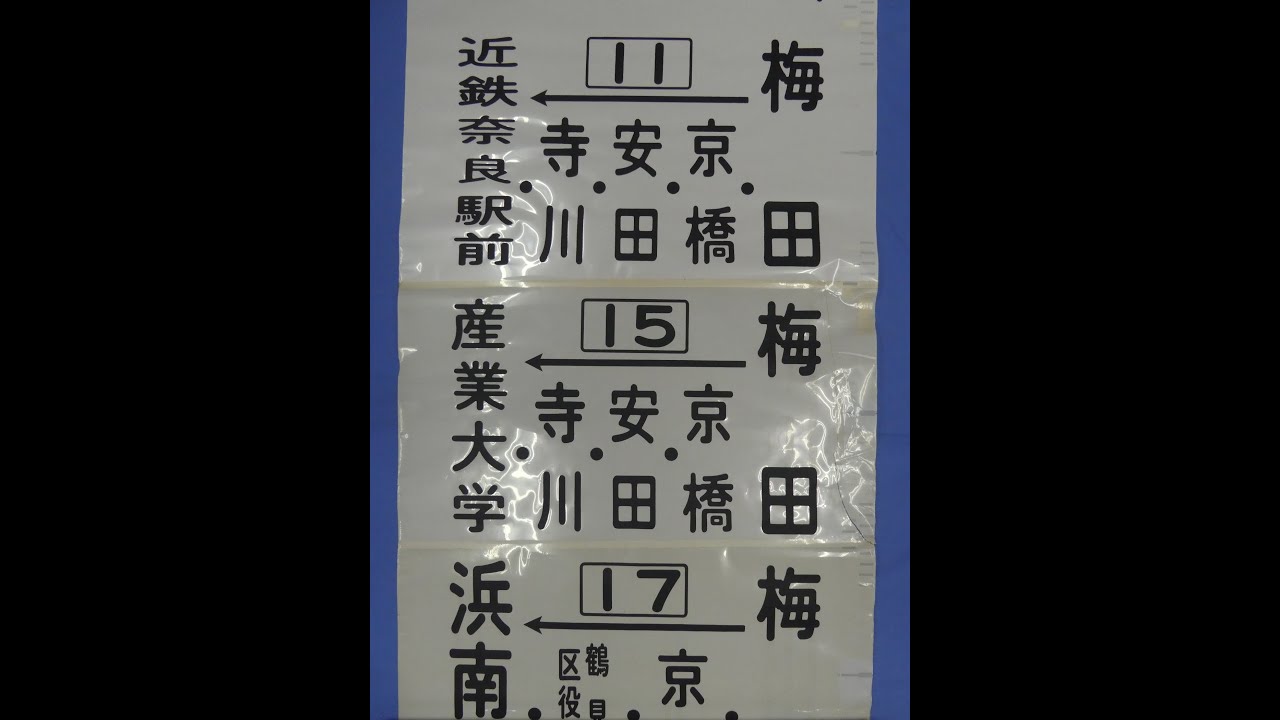 11
梅田
京橋・安田・寺川・
近鉄奈良駅前
15
梅田
京橋・安田・寺川・
産業大学
17
梅
京
鶴見
区役
浜南